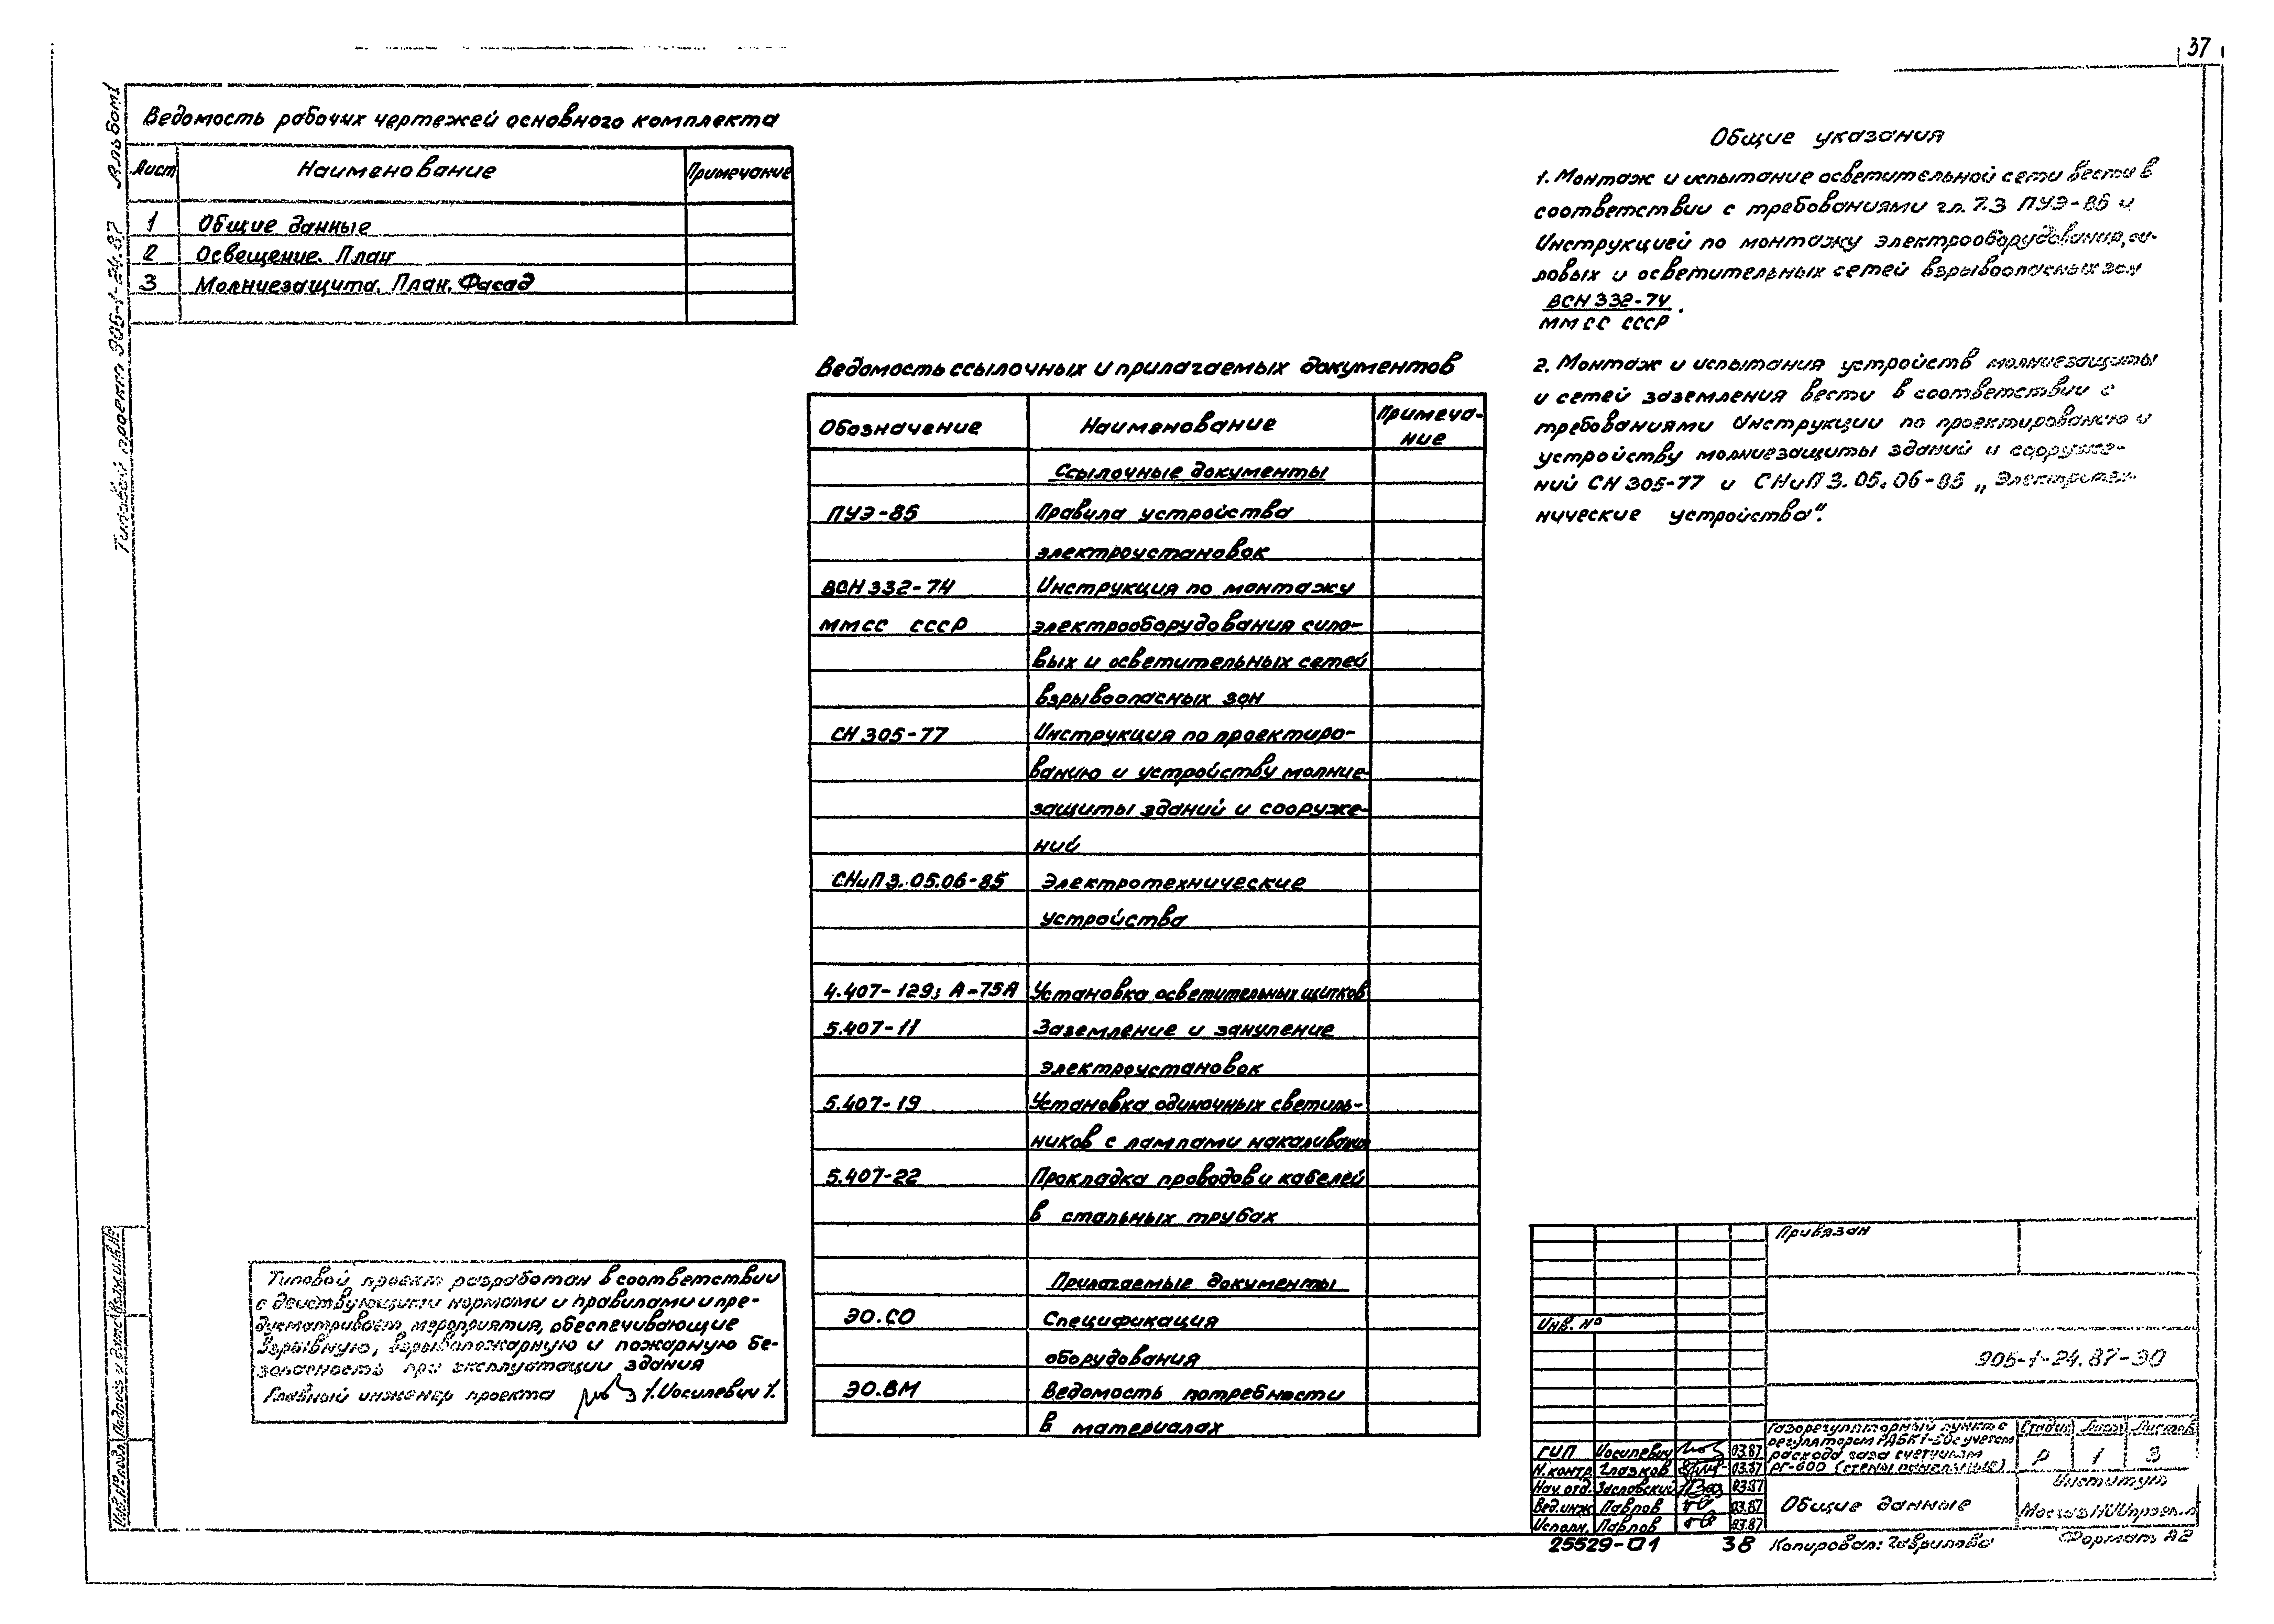 37
Альбом 1
Типовой проект 905-1-24.87
Ведомость рабочих чертежей основного комплекта
Лист Наименование Примечание
1 Общие данные
2 Освещение. План
3 Молниезащита. План. Фасад
Ведомость ссылочных и прилагаемых документов
Обозначение Наименование Примеча-
ние
Ссылочные документы
ПУЭ-85 Правила устройства
электроустановок
ВСН 332-74 Инструкция по монтажу
ММСС СССР электрооборудования сило-
вых и осветительных сетей
взрывоопасных зон
СН 305-77 Инструкция по проектиро-
ванию и устройству молние-
защиты зданий и сооруже-
ний
СНиП 3.05.06-85 Электротехнические
устройства
4.407-129; А-75А Установка осветительных щитков
5.407-11 Заземление и зануление
электроустановок
5.407-19 Установка одиночных светиль-
ников с лампами накаливания
5.407-22 Прокладка проводов и кабелей
в стальных трубах
Прилагаемые документы
ЭО.СО Спецификация
оборудования
ЭО.ВМ Ведомость потребности
в материалах
Общие указания
1. Монтаж и испытание осветительной сети вести в
соответствии с требованиями гл. 7.3 ПУЭ-85 и
Инструкцией по монтажу электрооборудования, си-
ловых и осветительных сетей взрывоопасных зон
ВСН 332-74
ММСС СССР .
2. Монтаж и испытания устройств молниезащиты
и сетей заземления вести в соответствии с
требованиями Инструкции по проектированию и
устройству молниезащиты зданий и сооруже-
ний СН 305-77 и СНиП 3.05.06-85 „Электротех-
нические устройства".
Типовой проект разработан в соответствии
с действующими нормами и правилами и пре-
дусматривает мероприятия, обеспечивающие
взрывную, взрывопожарную и пожарную бе-
зопасность при эксплуатации здания
Главный инженер проекта /Иосилевич/.
Инв.№ подл. Подпись и дата Взам.инв.№
Привязан
Инв. №
905-1-24.87-ЭО
ГИП Иосилевич 03.87
Н.контр. Глазков 03.87
Нач.отд. Заславский 03.87
Вед.инж. Павлов 03.87
Исполн. Павлов 03.87
Газорегуляторный пункт с
регулятором РДБК1-50 с учетом
расхода газа счетчиком
РГ-600 (стены панельные)
Стадия Лист Листов
Р 1 3
Общие данные
Институт
МосгазНИИпроект
25529-01 38 Копировал: Гаврилова Формат А2